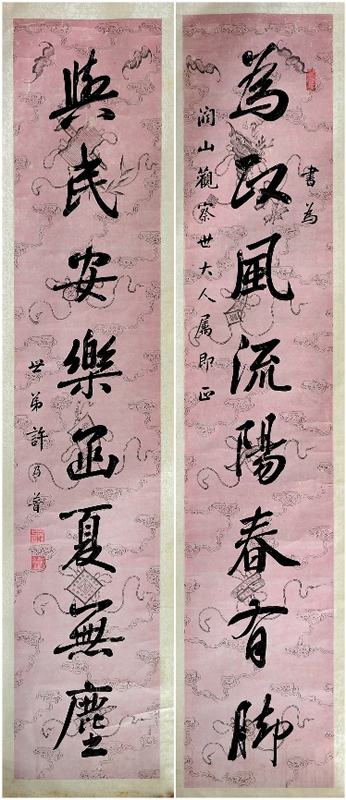 為政風流陽春有脚
書為
潤山觀察世大人屬即正
與民安樂函夏無塵
世弟許乃普